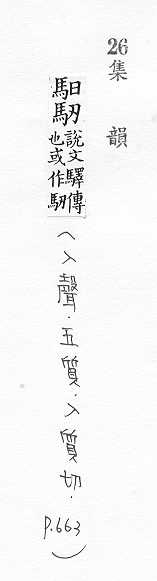 26 集韻
馹
說文驛傳
也或作
(入聲.五質.入質切.P.663)